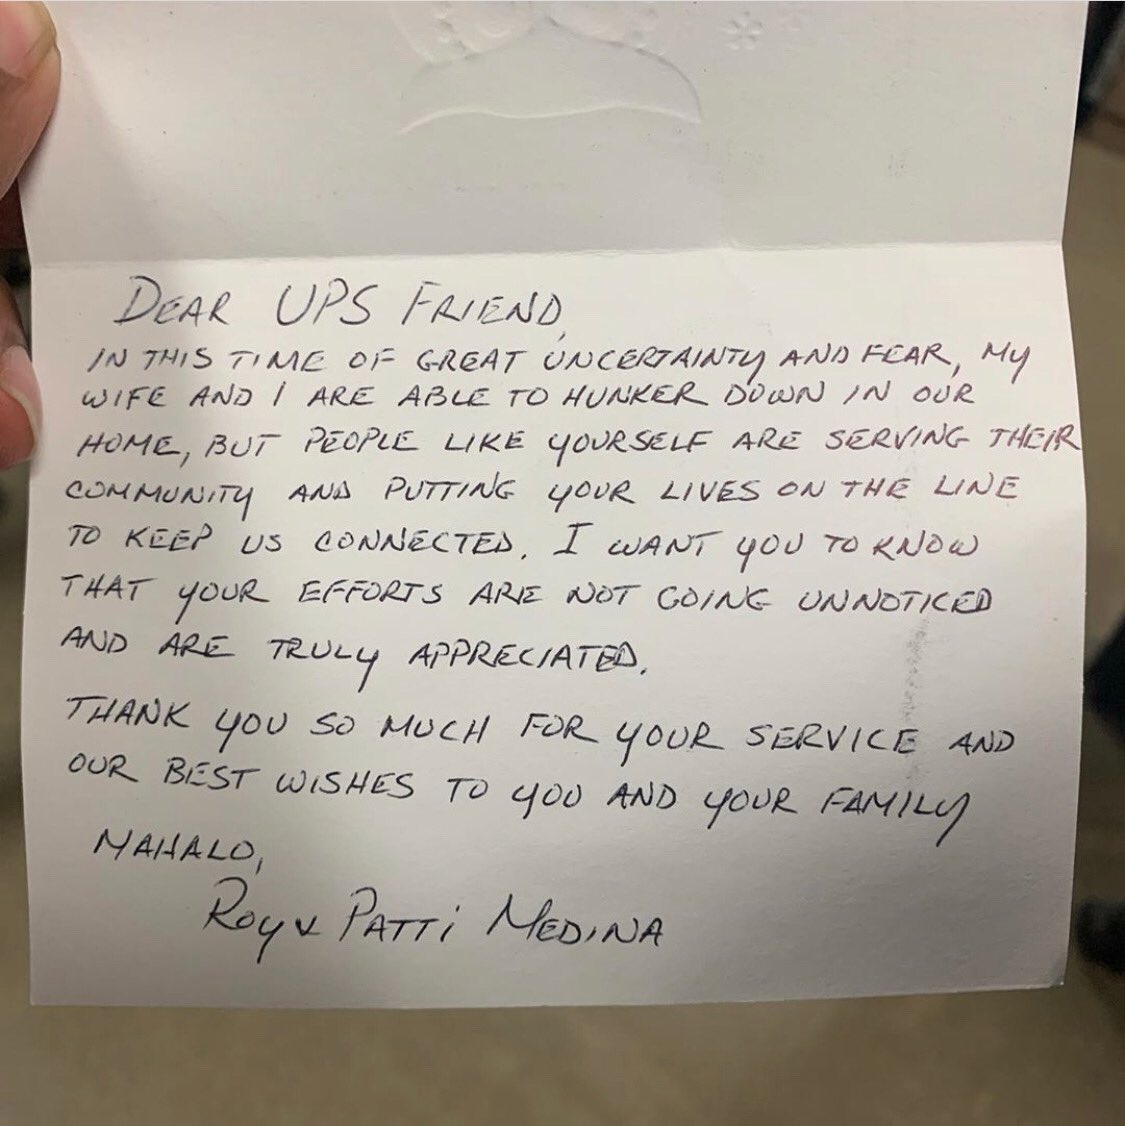 DEAR UPS FRIEND,
IN THIS TIME OF GREAT UNCERTAINTY AND FEAR, MY
WIFE AND I ARE ABLE TO HUNKER DOWN IN OUR
HOME, BUT PEOPLE LIKE YOURSELF ARE SERVING THEIR
COMMUNITY AND PUTTING YOUR LIVES ON THE LINE
TO KEEP US CONNECTED. I WANT YOU TO KNOW
THAT YOUR EFFORTS ARE NOT GOING UNNOTICED
AND ARE TRULY APPRECIATED.
THANK YOU SO MUCH FOR YOUR SERVICE AND
OUR BEST WISHES TO YOU AND YOUR FAMILY
MAHALO,
ROY & PATTI MEDINA